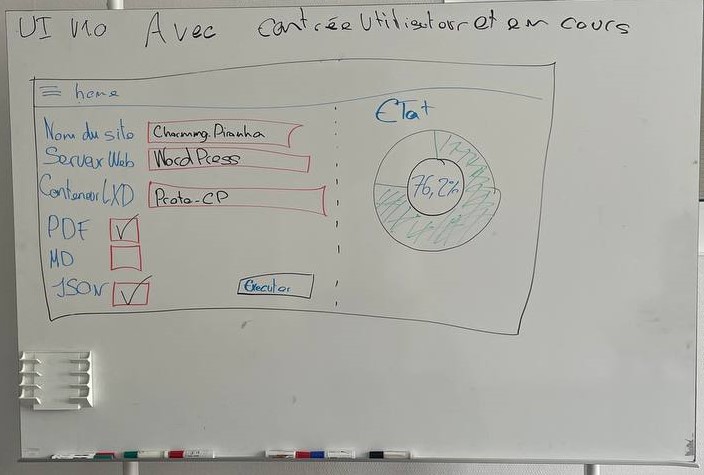 UI V1.0 Avec entrée Utilisateur et en cours
home
Nom du site Charming.Piranha
Serveur Web WordPress
Conteneur LXD Proto-CP
PDF
MD
JSON
Executer
Etat
76,2%